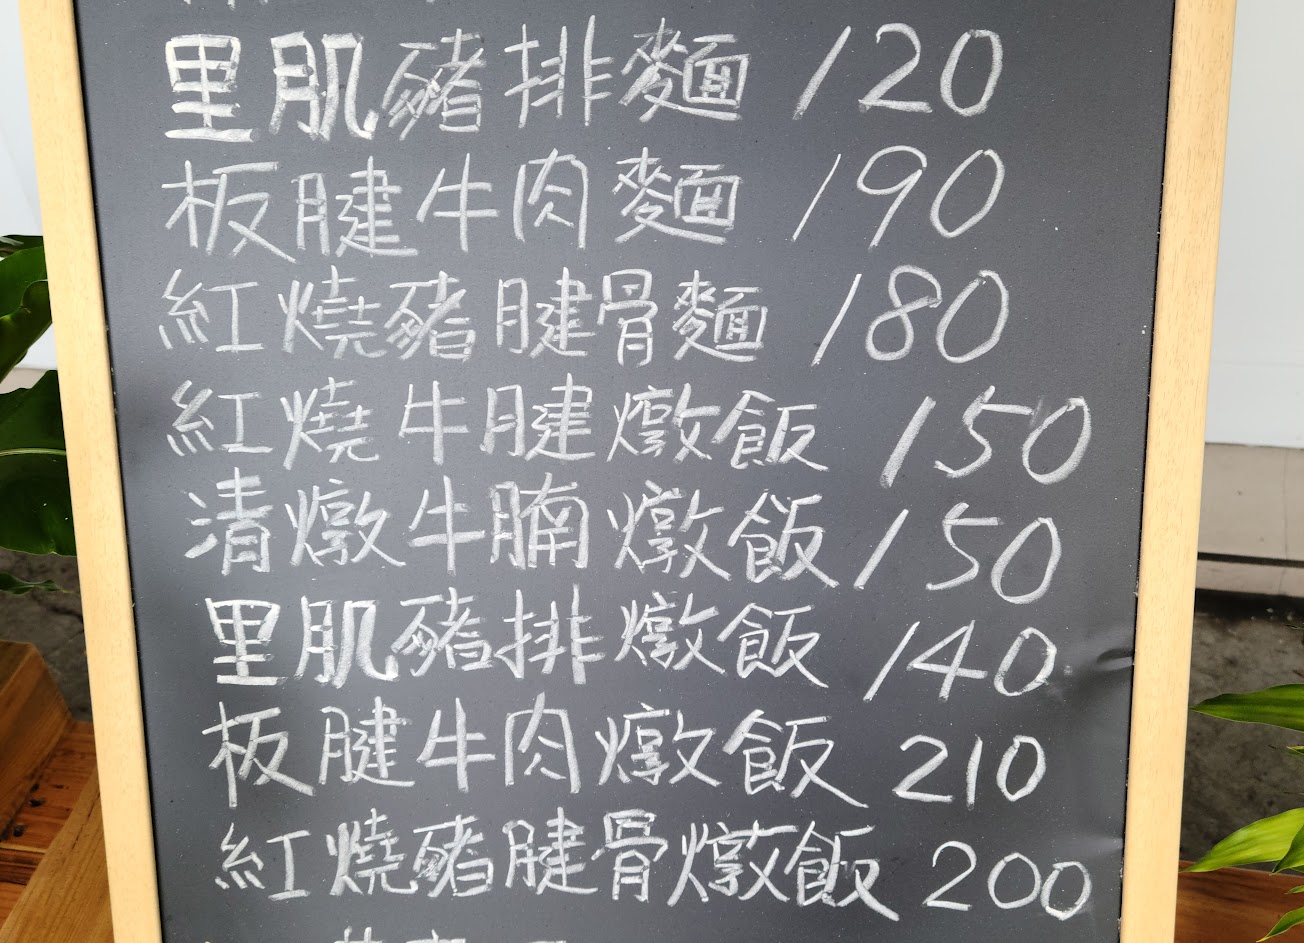 里肌豬排麵 120
板腱牛肉麵 190
紅燒豬腱骨麵 180
紅燒牛腱燉飯 150
清燉牛腩燉飯 150
里肌豬排燉飯 140
板腱牛肉燉飯 210
紅燒豬腱骨燉飯 200